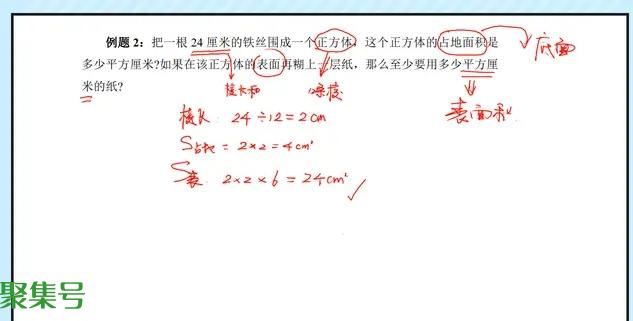 例题2：把一根24厘米的铁丝围成一个正方体，这个正方体的占地面积是
多少平方厘米?如果在该正方体的表面再糊上一层纸，那么至少要用多少平方厘
米的纸?
底面
棱长和
12条棱
表面积
棱长 24÷12=2cm
S占地=2×2=4cm²
S表 2×2×6=24cm²
聚集号